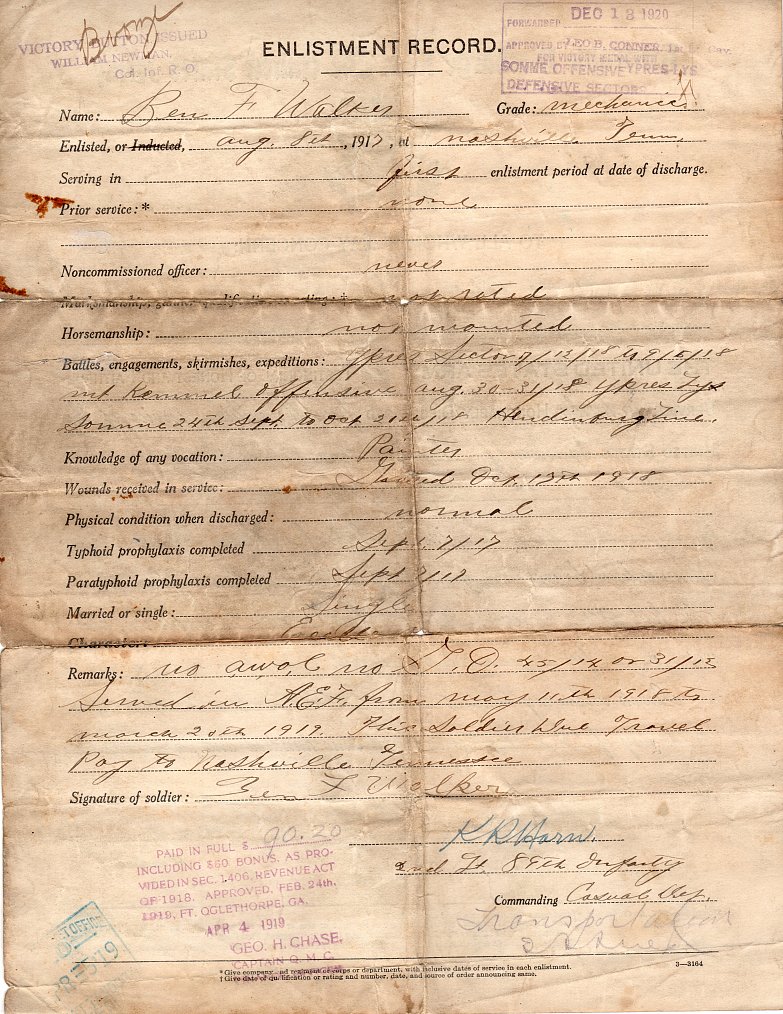 Bronze
VICTORY BUTTON ISSUED
WILLIAM NEWMAN,
Col. Inf. R. O.
FORWARDED DEC 13 1920
APPROVED BY LEO B. CONNER, 1st Lt. Cav.
FOR VICTORY MEDAL WITH
SOMME OFFENSIVE YPRES-LYS
DEFENSIVE SECTORS
ENLISTMENT RECORD.
Name: Ben F Walker Grade: mechanic
Enlisted, or Inducted, aug. 8th, 1917, at nashville Tenn.
Serving in first enlistment period at date of discharge.
Prior service:* none
Noncommissioned officer: never
Marksmanship, gunner qualification or rating:† not rated
Horsemanship: not mounted
Battles, engagements, skirmishes, expeditions: Ypres Sector 7/12/18 to 9/5/18
mt Kemmel offensive aug. 30-31/18 Ypres Lys
Somme 24th Sept. to Oct 20th/18 Hendinburg Line.
Knowledge of any vocation: Painter
Wounds received in service: Oct. 13th 1918
Physical condition when discharged: normal
Typhoid prophylaxis completed Sept. 7/17
Paratyphoid prophylaxis completed Sept 7/17
Married or single: Single
Character: Excellent
Remarks: no a.w.o.l no T.D. 45/14 or 31/12
Served in A.E.F. from may 11th 1918 to
march 20th 1919. This Soldier Due Travel
Pay to Nashville Tennessee
Signature of soldier: Ben F Walker
PAID IN FULL $ 90.20
INCLUDING $60 BONUS, AS PRO-
VIDED IN SEC. 1406, REVENUE ACT
OF 1918. APPROVED, FEB. 24th,
1919, FT. OGLETHORPE, GA.
APR 4 1919
GEO. H. CHASE,
CAPTAIN Q. M. C.
K R Horn
2nd Lt. Infantry
Commanding Casual Dep.
Transportation
OFFICE
1919
*Give company and regiment or corps or department, with inclusive dates of service in each enlistment.
†Give date of qualification or rating and number, date, and source of order announcing same.
3—3164